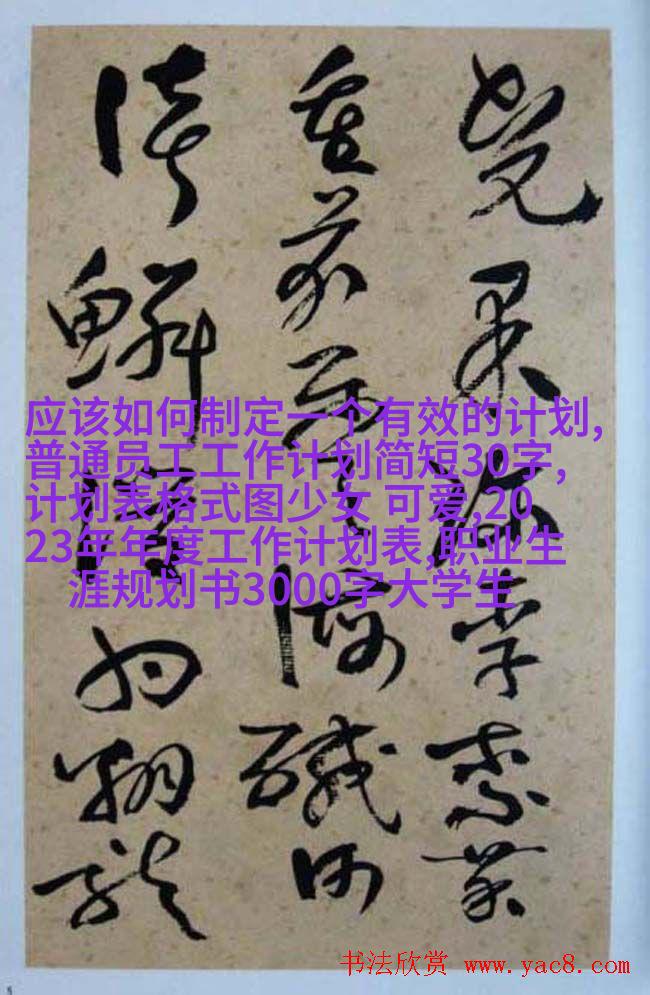 果珍李柰菜
重芥薑海鹹河
淡鱗潛羽翔龍
应该如何制定一个有效的计划,
普通员工工作计划简短30字,
计划表格式图少女 可爱,20
23年年度工作计划表,职业生
涯规划书3000字大学生
书法欣赏 www.yac8.com
8